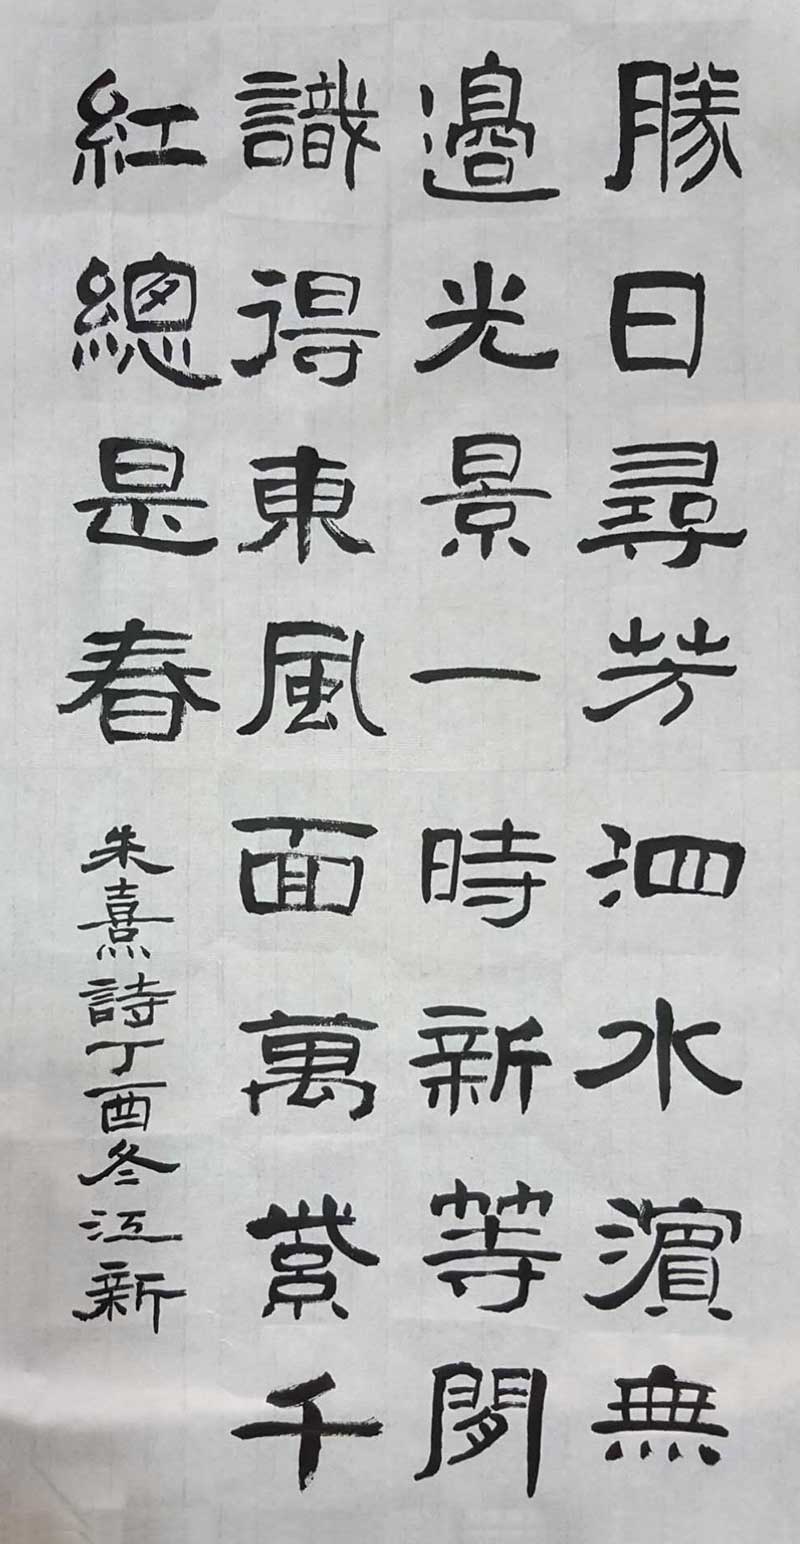 勝日尋芳泗水濱無
邊光景一時新等閒
識得東風面萬紫千
紅總是春
朱熹詩丁酉冬江新